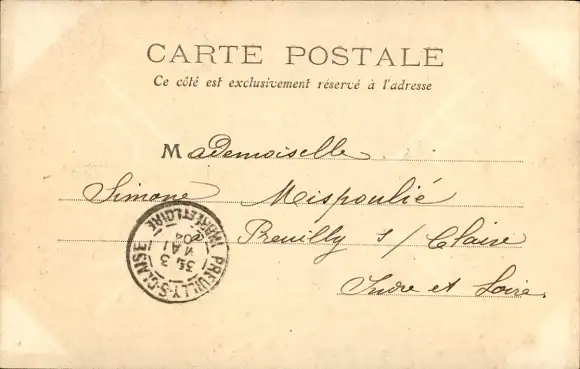 CARTE POSTALE
Ce côté est exclusivement réservé à l'adresse
Mademoiselle
Simone Mispoulié
Preuilly s/ Claise
Indre et Loire.
PREUILLY-S-CLAISE
3
MAI
04
INDRE ET LOIRE